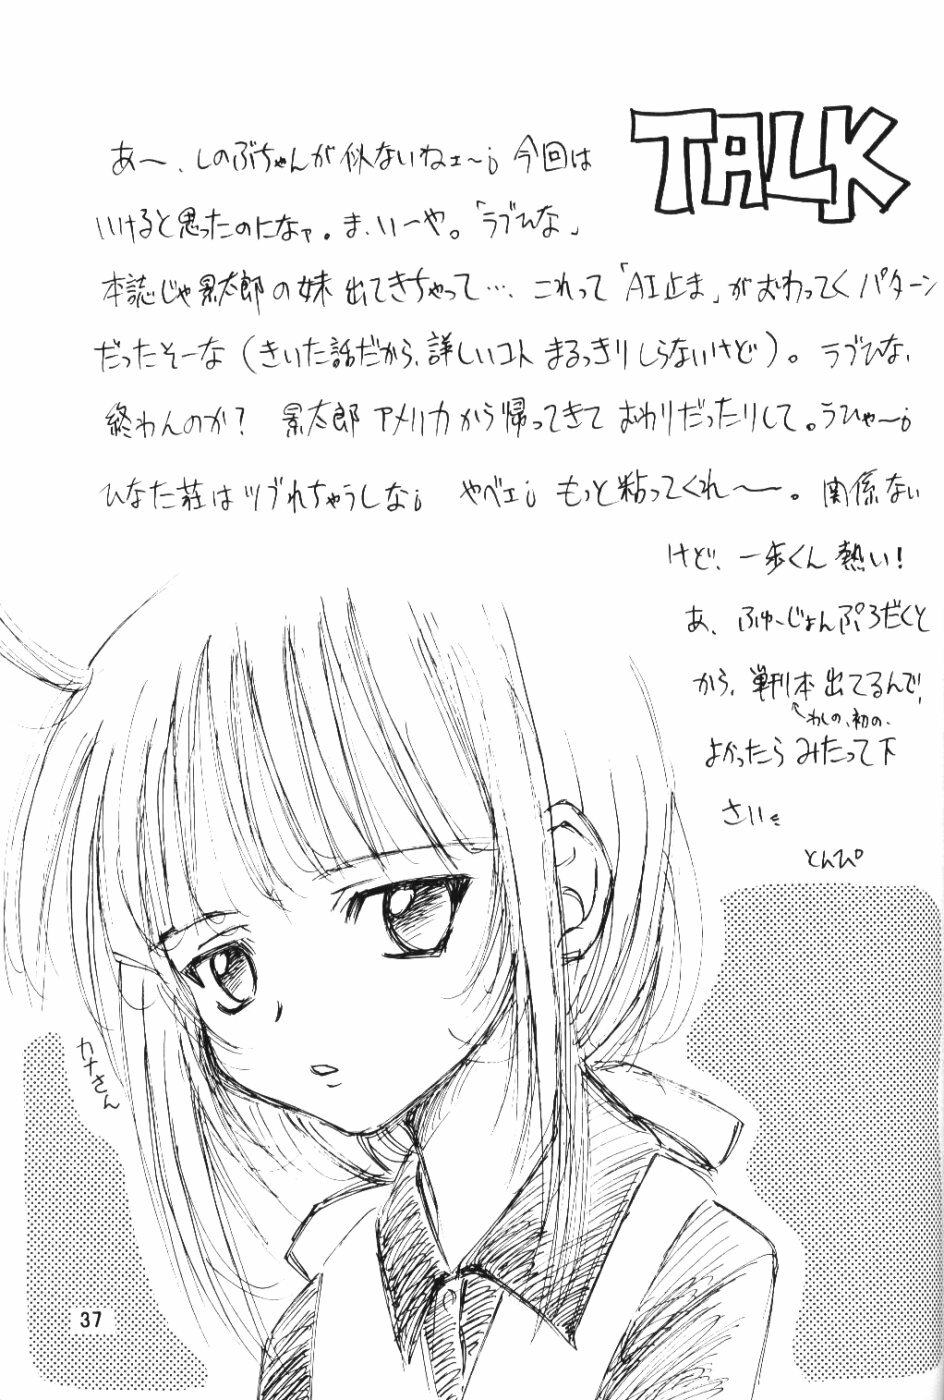 TALK
あ～、しのぶちゃんが似ないねェ～; 今回は
いけると思ったのになァ。ま、いーや。「ラブひな」
本誌じゃ景太郎の妹出てきちゃって…、これって「AI止ま」がおわってくパターン
だったそーな（きいた話だから、詳しいコトまるっきりしらないけど）。ラブひな、
終わんのか？ 景太郎アメリカから帰ってきておわりだったりして。うひゃ～;
ひなた荘はツブれちゃうしな; やべェ; もっと粘ってくれ～。関係ない
けど、一歩くん熱い！
あ、ふゅーじょんぷろだくと
から、単刊本出てるんで、
←わしの、初の、
よかったらみたって下
さい
とんぴ
カナさん
37